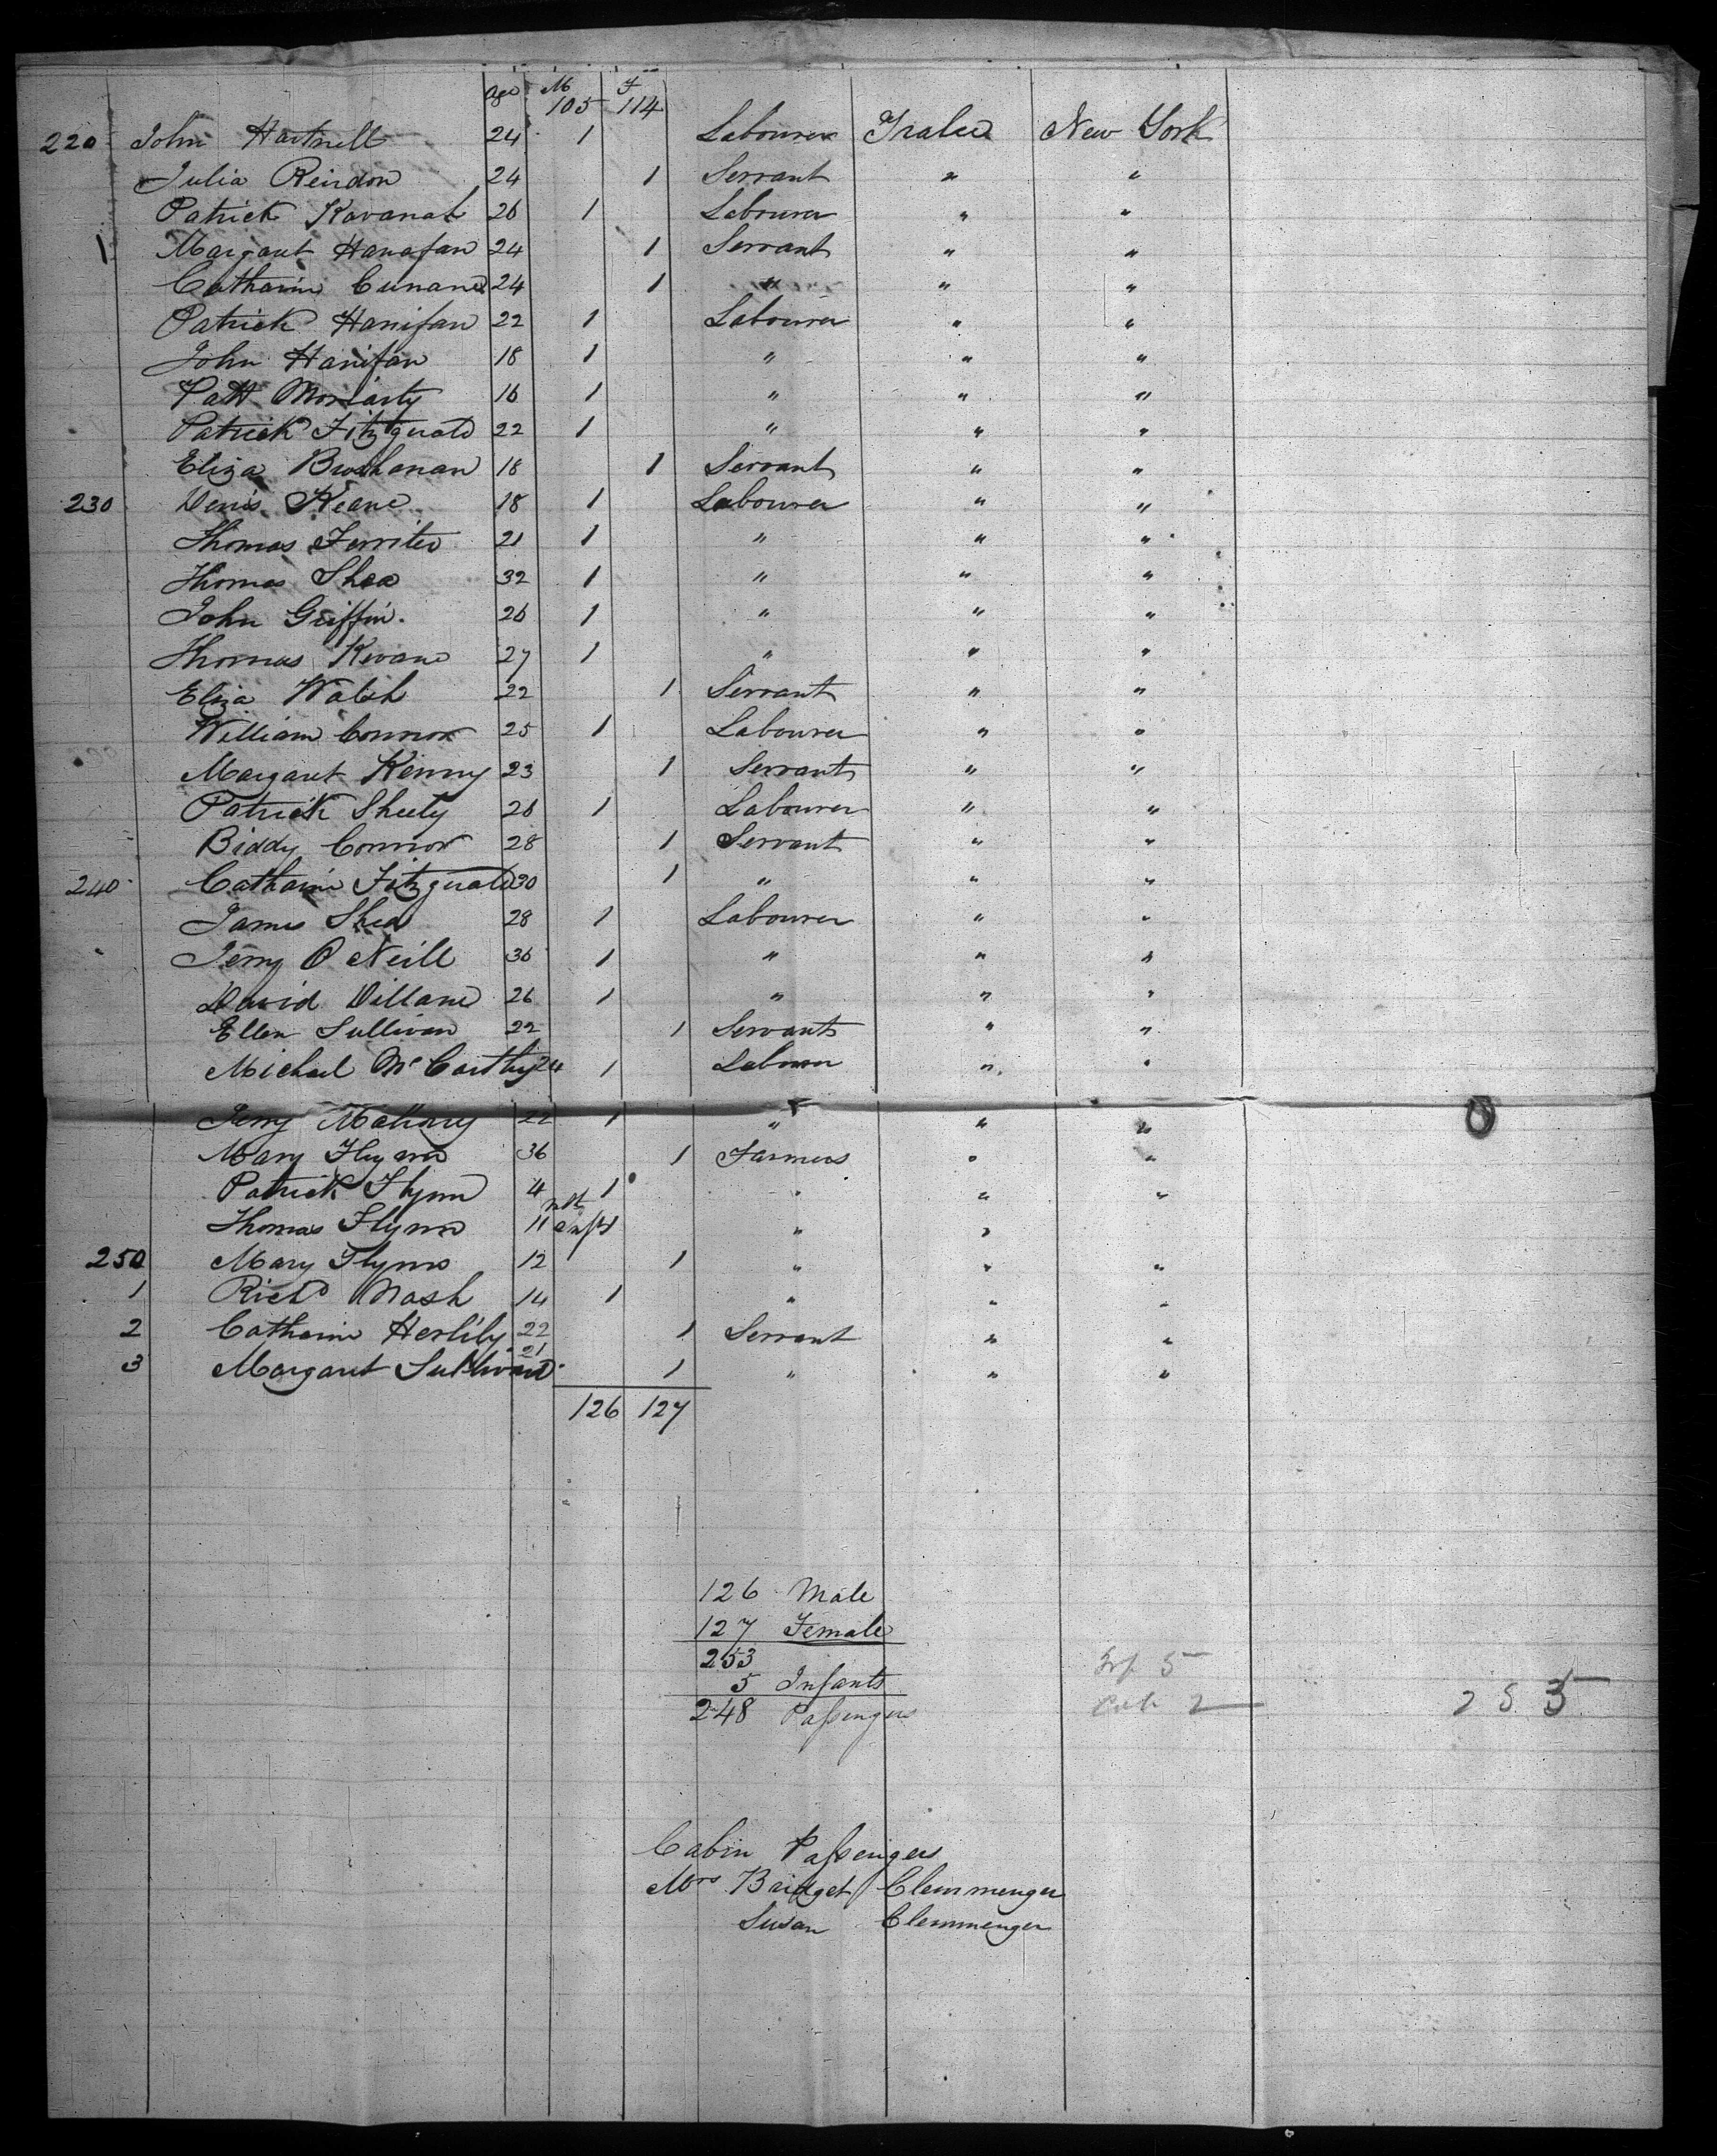 Age M F
105 114
220 John Hartnell 24 1 Labourer Tralee New York
Julia Reirdon 24 1 Servant " "
Patrick Kavanah 26 1 Labourer " "
1 Margaret Hanafan 24 1 Servant " "
Catharine Cunane 24 1 " " "
Patrick Hanifan 22 1 Labourer " "
John Hanifan 18 1 " " "
Patt Moriarty 16 1 " " "
Patrick Fitzgerald 22 1 " " "
Eliza Broshanan 18 1 Servant " "
230 Denis Keane 18 1 Labourer " "
Thomas Ferriter 21 1 " " "
Thomas Shea 32 1 " " "
John Griffin. 26 1 " " "
Thomas Kevane 27 1 " " "
Eliza Walsh 22 1 Servant " "
William Connor 25 1 Labourer " "
Margaret Kenny 23 1 Servant " "
Patrick Sheety 26 1 Labourer " "
Biddy Connor 28 1 Servant " "
240 Catharine Fitzgerald 30 1 " " "
James Shea 28 1 Labourer " "
Jerry O Neill 36 1 " " "
David Dillane 26 1 " " "
Ellen Sullivan 22 1 Servant " "
Michael McCarthy 24 1 Labourer " "
Jerry Mahony 22 1 " " "
Mary Flynn 36 1 Farmers " "
Patrick Flynn 4 1 " " "
mth
Thomas Flynn 11 inft 1 " "
250 Mary Flynn 12 1 " " "
1 Richd Nash 14 1 " " "
2 Catharine Herlihy 22 1 Servant " "
3 Margaret Sullivan 21 1 " " "
126 127
126 Male
127 Female
253
5 Infants
248 Passengers
Inf. 5
2
253
Cabin Passengers
Mrs Bridget Clemmenger
Susan Clemmenger